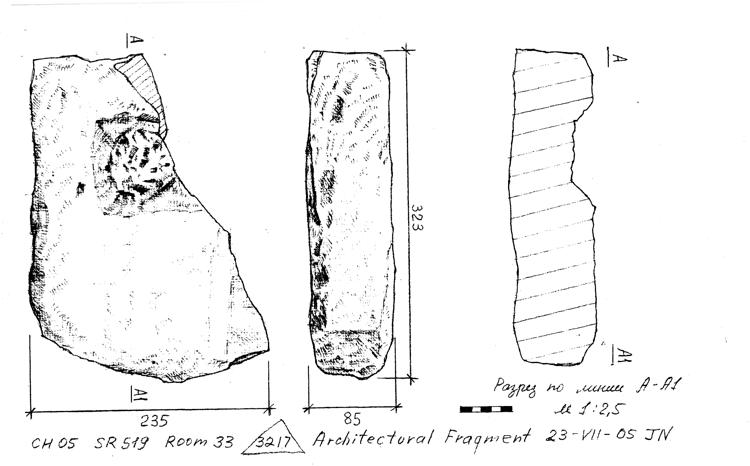 A
A
323
A1
A1
Разрез по линии А-А1
М 1:2,5
235
85
CH 05 SR 519 Room 33 3217 Architectural Fragment 23-VII-05 JN